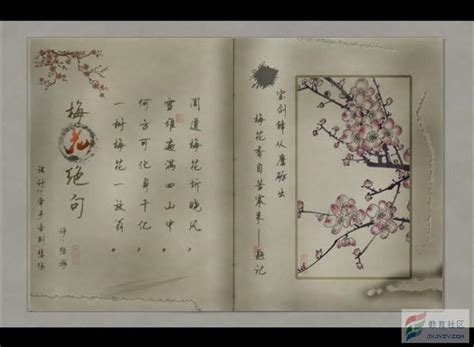 梅花绝句
诗/陆游
闻道梅花坼晓风，
雪堆遍满四山中。
何方可化身千亿，
一树梅花一放翁。
宝剑锋从磨砺出
梅花香自苦寒来——题记
教育社区
JXJYZY.COM